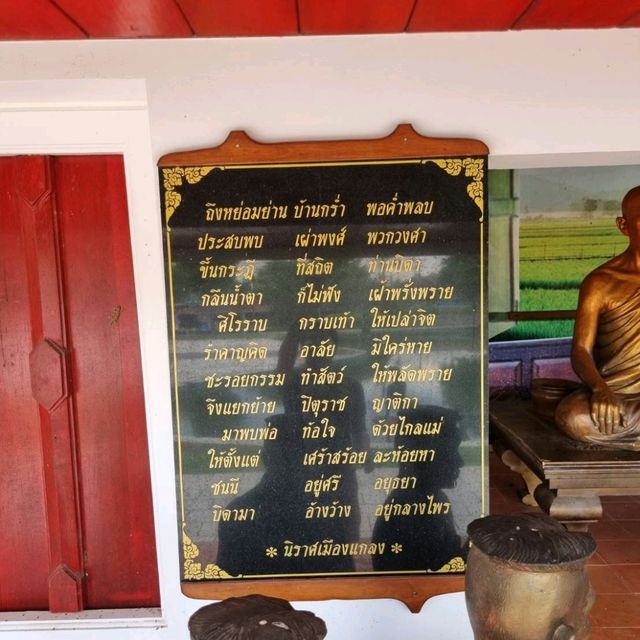 ถึงหย่อมย่าน บ้านกร่ำ พอค่ำพลบ
ประสบพบ เผ่าพงศ์ พวกวงศา
ขึ้นกระฎี ที่สถิต ท่านบิดา
กลืนน้ำตา ก็ไม่ฟัง เฝ้าพรั่งพราย
ศิโรราบ กราบเท้า ให้เปล่าจิต
รำคาญคิด อาลัย มิใคร่หาย
ชะรอยกรรม ทำสัตว์ ให้พลัดพราย
จึงแยกย้าย ปิตุราช ญาติกา
มาพบพ่อ ท้อใจ ด้วยไกลแม่
ให้ตั้งแต่ เศร้าสร้อย ละห้อยหา
ชนนี อยู่ศรี อยุธยา
บิดามา อ้างว้าง อยู่กลางไพร
* นิราศเมืองแกลง *